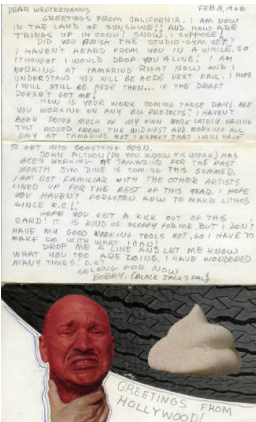 DEAR WESTERMANNS FEB 3, 1968
GREETINGS FROM CALIFORNIA. I AM NOW
IN THE LAND OF SUNSHINE!! AND HOW ARE
THINGS UP IN CONN? SNOW, I SUPPOSE!
DID YOU FINISH THE STUDIO-GYM YET?
I HAVEN'T HEARD FROM YOU IN A WHILE, SO
I THOUGHT I WOULD DROP YOU A LINE! I AM
WORKING AT TAMARIND RIGHT NOW AND I
UNDERSTAND YOU WILL BE HERE NEXT FALL. I HOPE
I WILL STILL BE HERE THEN... IF THE DRAFT
DOESN'T GET ME!
HOW IS YOUR WORK COMING THESE DAYS. ARE
YOU WORKING ON ANY BIG PROJECTS? I HAVEN'T
BEEN DOING MUCH OF MY OWN WORK LATELY HAVING
JUST MOVED FROM THE MIDWEST AND WORKING ALL
DAY AT TAMARIND BUT I EXPECT THAT I WILL HAVE
TO GET INTO SOMETHING SOON.
JOHN ALTOON (DO YOU KNOW HIS WORK) HAS
BEEN WORKING AT TAMARIND FOR THE PAST
MONTH. JIM DINE IS COMING THIS SUMMER.
I AM NOT FAMILIAR WITH THE OTHER ARTISTS
LINED UP FOR THE REST OF THIS YEAR. I HOPE
YOU HAVEN'T FORGOTTEN HOW TO MAKE LITHOS
SINCE K.C.!
HOPE YOU GET A KICK OUT OF THE
CARD! IT IS KIND OF SLOPPY FOR ME, BUT I DON'T
HAVE MY GOOD WORKING TOOLS YET, SO I HAVE TO
MAKE DO WITH WHAT I CAN!
DROP ME A LINE AND LET ME KNOW
WHAT YOU TOO ARE DOING. I HAVE WONDERED
MANY TIMES! O.K?
SO LONG FOR NOW
BOBBY
GREETINGS FROM
HOLLYWOOD!